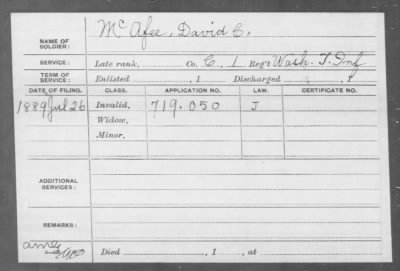 NAME OF SOLDIER: McAfee, David C.
SERVICE: Late rank, Co. C, 1 Reg't Wash. T. Inf
TERM OF SERVICE: Enlisted , 1 Discharged , 1
DATE OF FILING. CLASS. APPLICATION NO. LAW. CERTIFICATE NO.
1889 Jul 26 Invalid, 719.050 J
Widow,
Minor,
ADDITIONAL SERVICES:
REMARKS:
Died , 1 , at